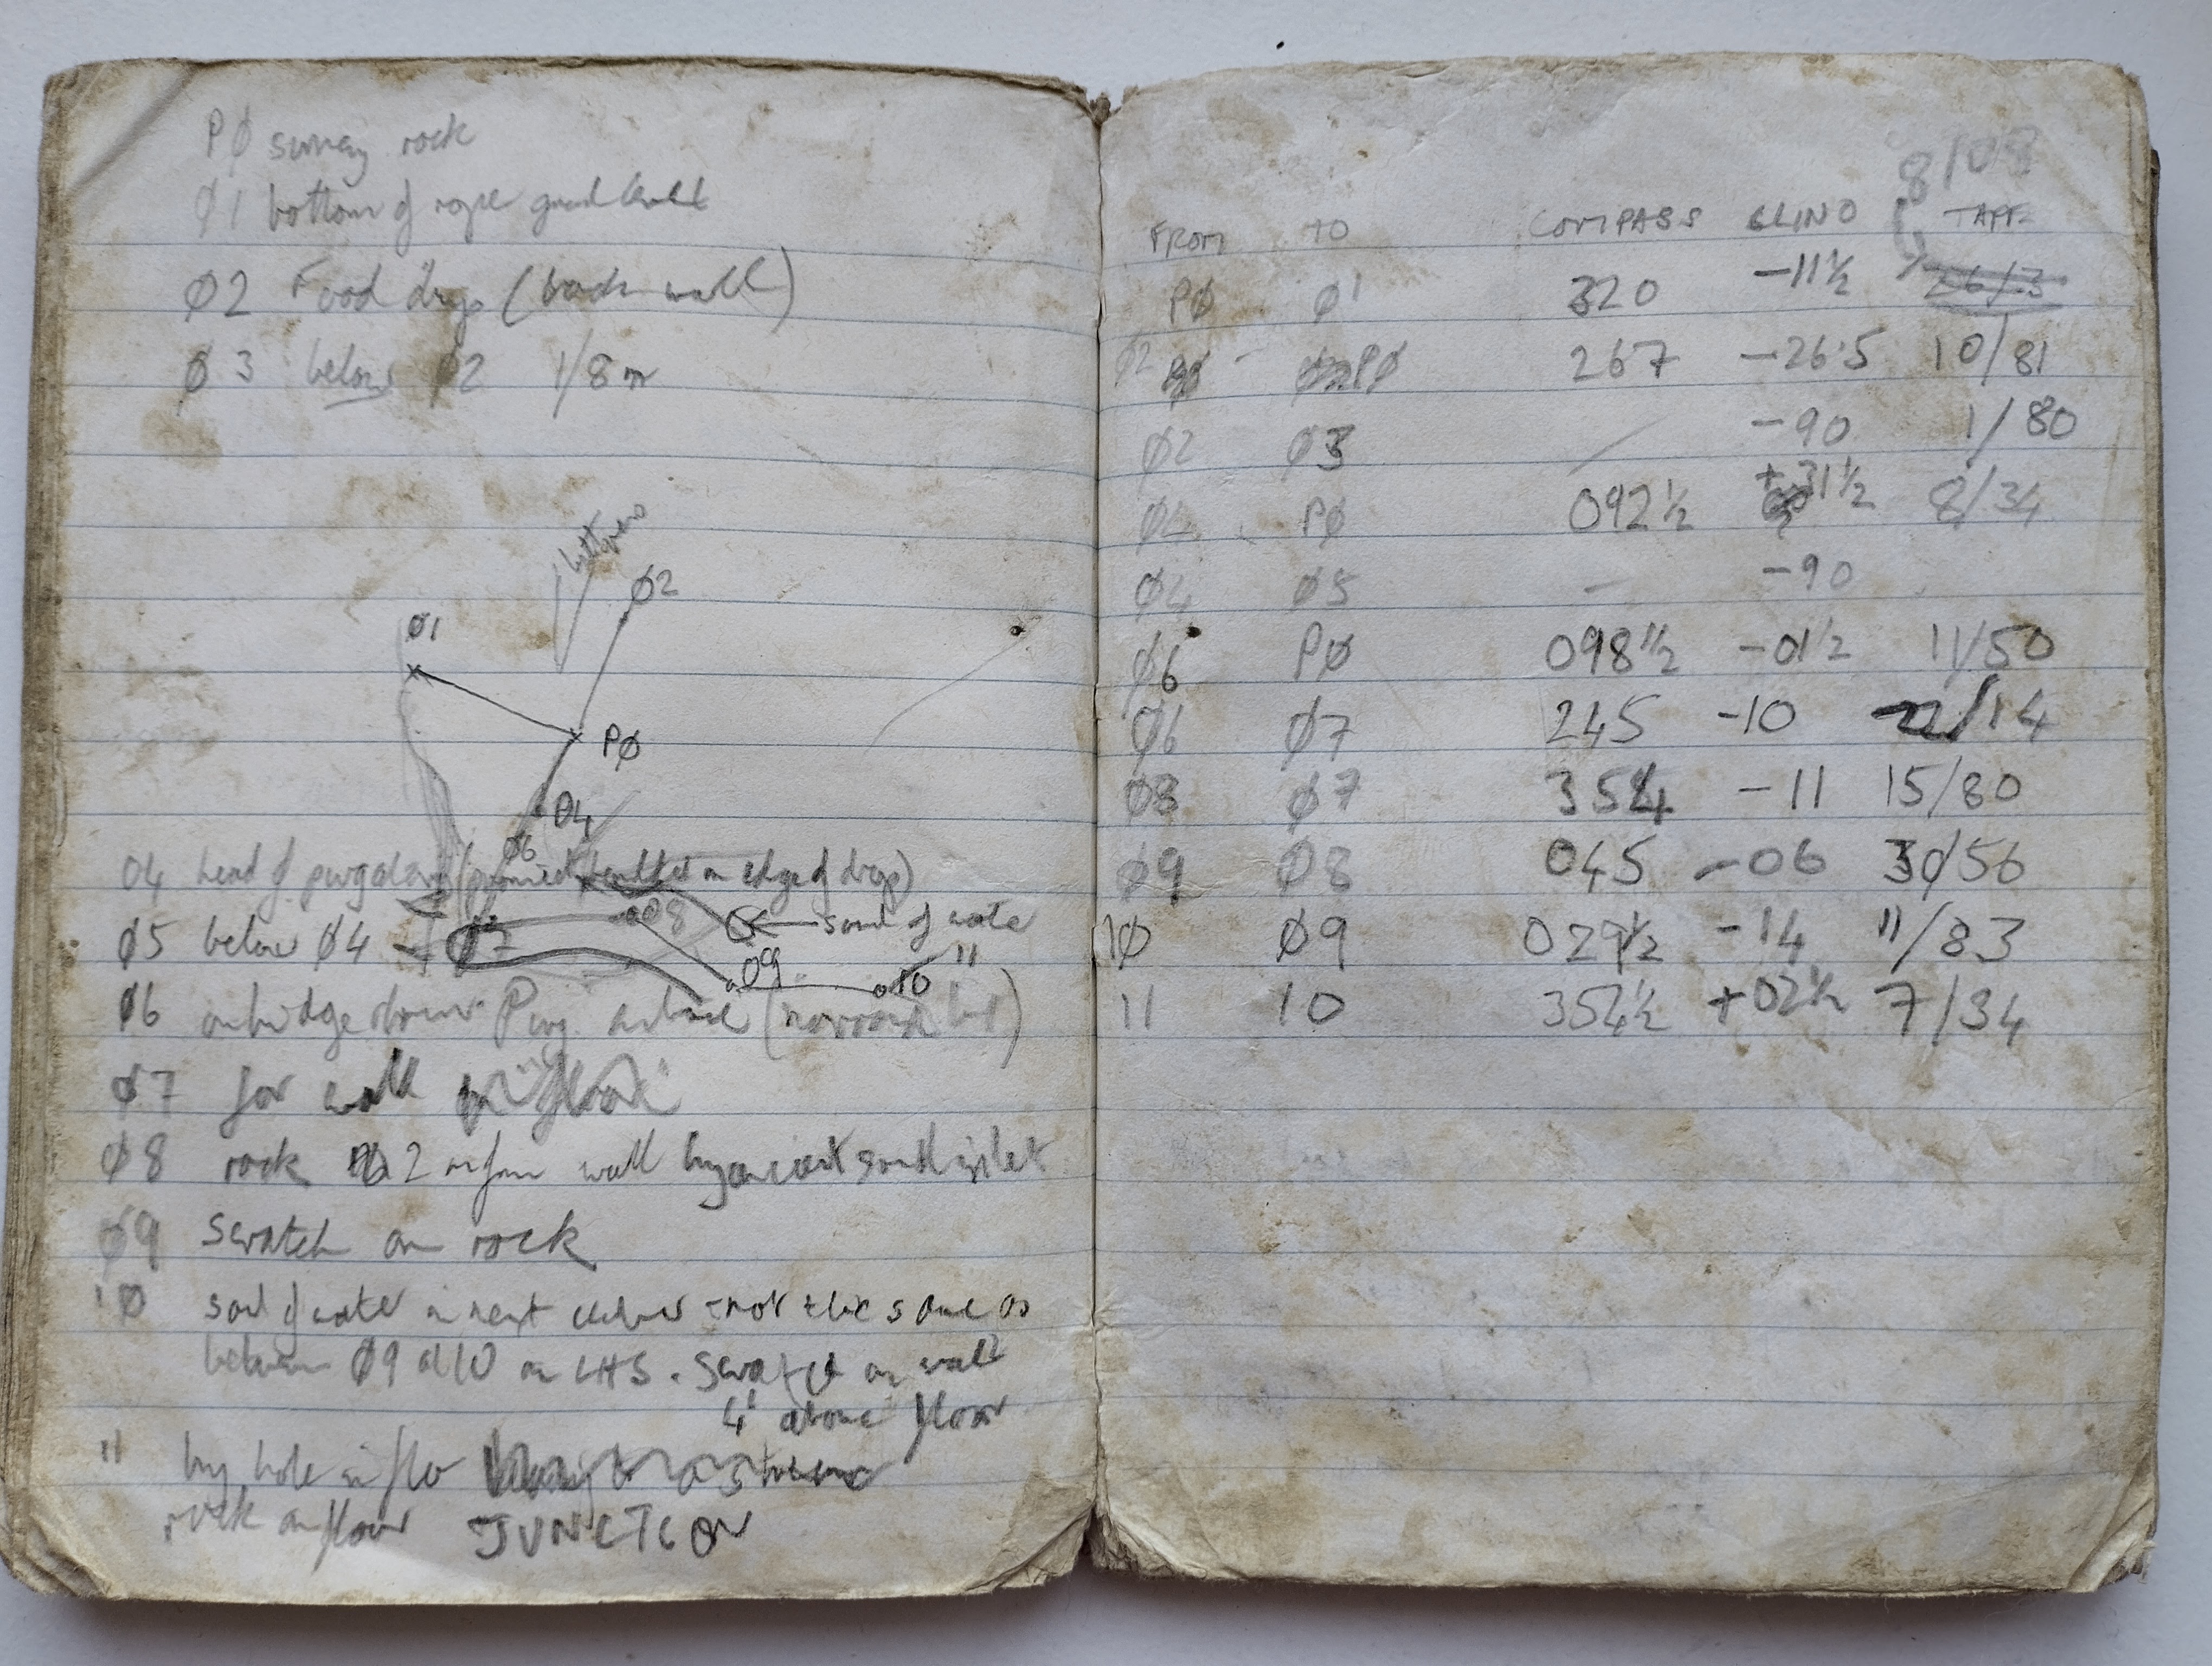 PØ survey rock
Ø1 bottom of rope
Ø2 Food drop (back wall)
Ø3 below Ø2 1/8m
Ø2
Ø1
PØ
04
06
04 head of (on edge of drop)
08
sound of water
Ø5 below Ø4
Ø7
09
10
11
Ø6 on bridge Purg.
Ø7 far wall
Ø8 rock 2 m from wall by
Ø9 scratch on rock
10 sound of water in next not the same as
between Ø9 & 10 on LHS. Scratch on wall
4' above floor
11 by hole in
rock on floor JUNCTION
8/03
FROM TO COMPASS CLINO TAPE
PØ Ø1 320 -11½ 26/3
Ø2 PØ 267 -26.5 10/81
Ø2 Ø3 — -90 1/80
Ø4 PØ 092½ +31½ 8/34
Ø4 Ø5 - -90
Ø6 PØ 098½ -01½ 11/50
Ø6 Ø7 245 -10 /14
Ø8 Ø7 354 -11 15/80
Ø9 Ø8 045 -06 30/56
10 Ø9 029½ -14 11/83
11 10 352½ +02½ 7/34